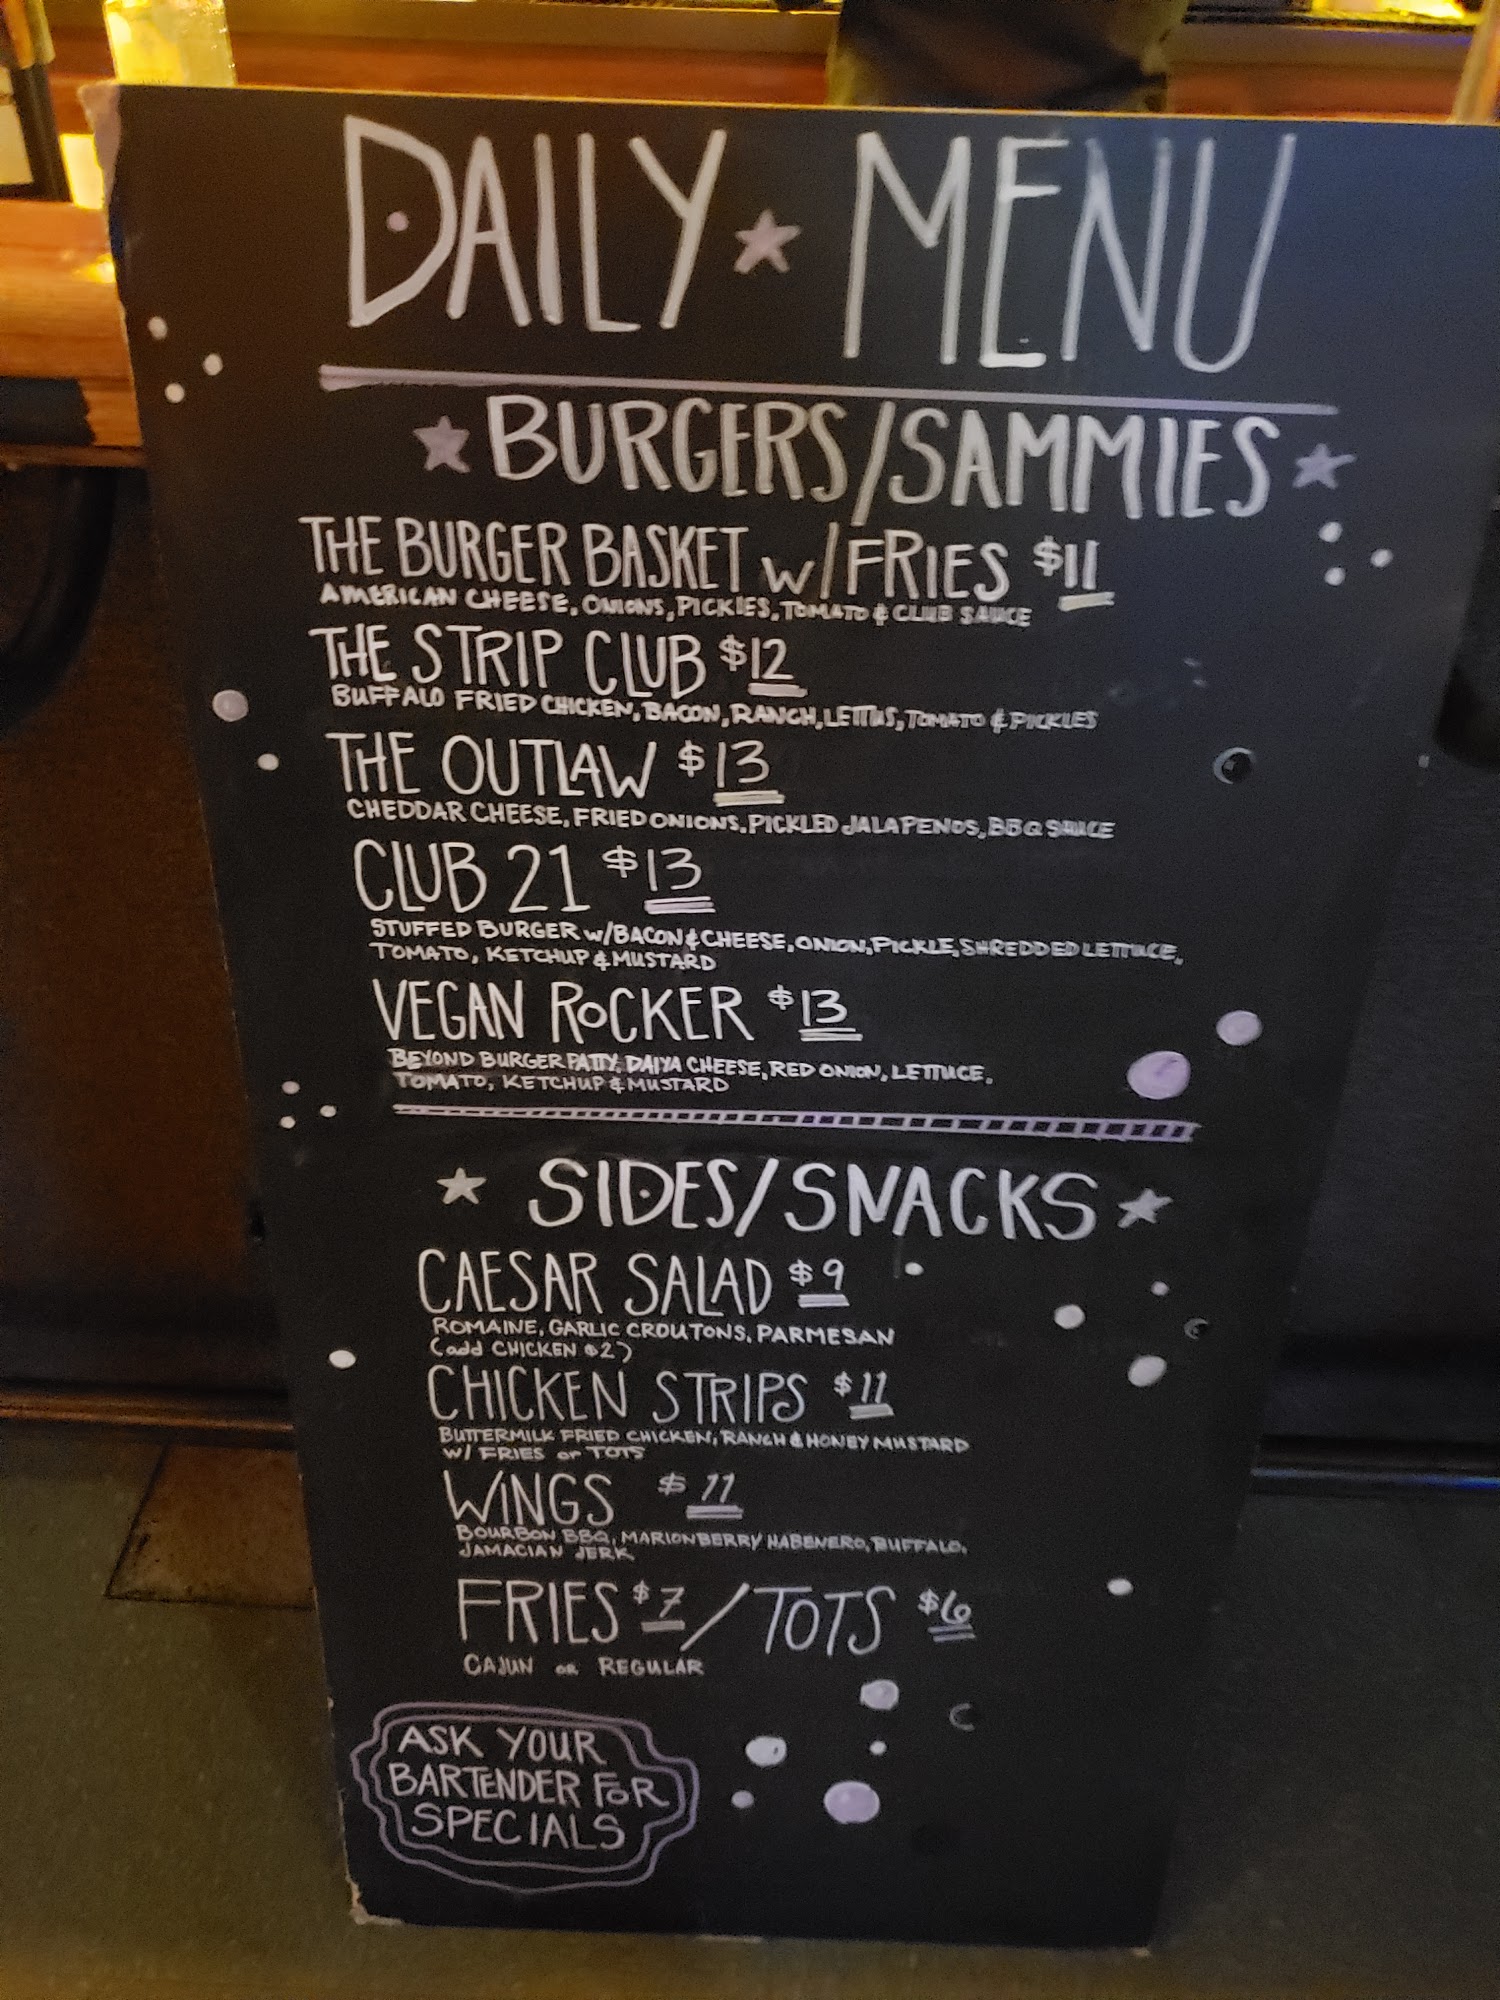 DAILY MENU
BURGERS/SAMMIES
THE BURGER BASKET W/FRIES $11
AMERICAN CHEESE, ONIONS, PICKLES, TOMATO & CLUB SAUCE
THE STRIP CLUB $12
BUFFALO FRIED CHICKEN, BACON, RANCH, LETTUS, TOMATO & PICKLES
THE OUTLAW $13
CHEDDAR CHEESE, FRIED ONIONS, PICKLED JALAPENOS, BBQ SAUCE
CLUB 21 $13
STUFFED BURGER W/BACON & CHEESE, ONION, PICKLE, SHREDDED LETTUCE,
TOMATO, KETCHUP & MUSTARD
VEGAN ROCKER $13
BEYOND BURGER PATTY, DAIYA CHEESE, RED ONION, LETTUCE,
TOMATO, KETCHUP & MUSTARD
SIDES/SNACKS
CAESAR SALAD $9
ROMAINE, GARLIC CROUTONS, PARMESAN
(add CHICKEN $2)
CHICKEN STRIPS $11
BUTTERMILK FRIED CHICKEN, RANCH & HONEY MUSTARD
W/ FRIES or TOTS
WINGS $11
BOURBON BBQ, MARIONBERRY HABENERO, BUFFALO,
JAMACIAN JERK
FRIES $7 / TOTS $6
CAJUN OR REGULAR
ASK YOUR
BARTENDER FOR
SPECIALS